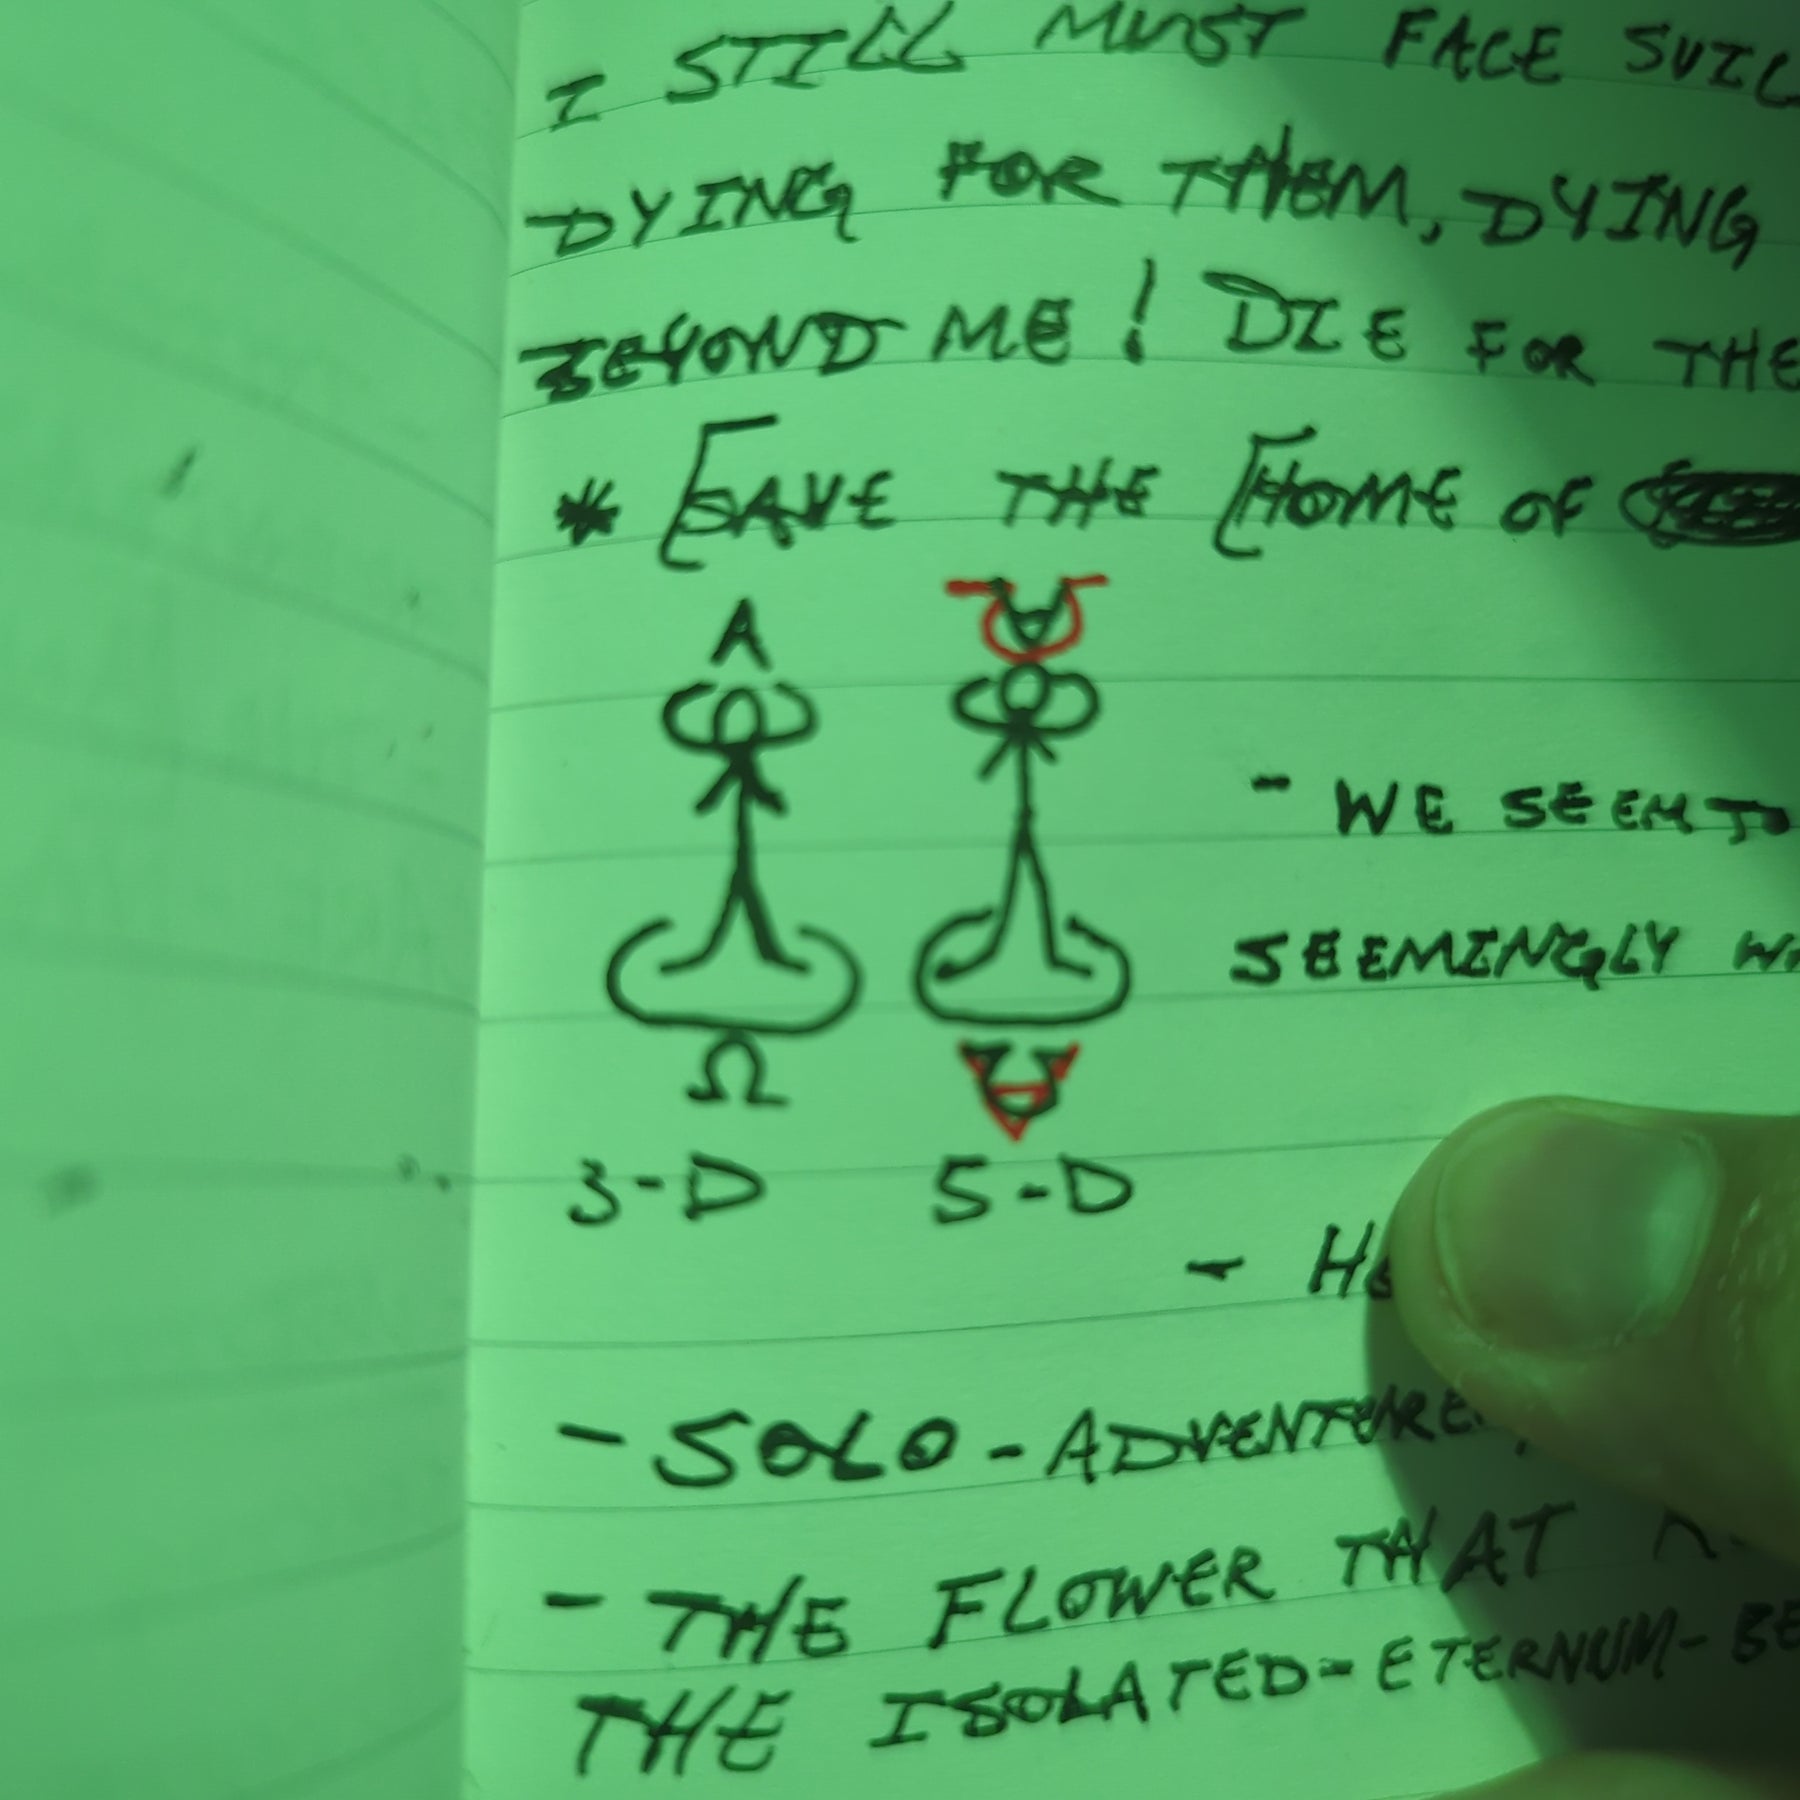 I STILL MUST FACE
DYING FOR THEM, DYING
BEYOND ME! DIE FOR
* [SAVE THE [HOME OF
A
- WE SEEM TO
SEEMINGLY
Ω
3-D 5-D
- SOLO - ADVENTURE
- THE FLOWER THAT
THE ISOLATED-ETERNUM-